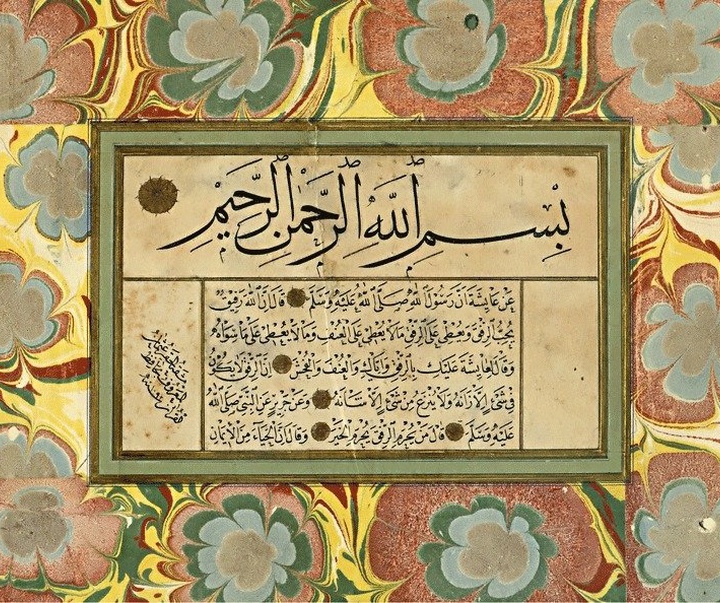 بِسْمِ اللَّهِ الرَّحْمٰنِ الرَّحِيمِ
عَنْ عَايِشَةَ اَنَّ رَسُولَ اللّٰهِ صَلَّى اللّٰهُ عَلَيْهِ وَسَلَّمَ قَالَ اِنَّ اللّٰهَ رَفِيقٌ
يُحِبُّ الرِّفْقَ وَيُعْطِى عَلَى الرِّفْقِ مَا لَا يُعْطِى عَلَى الْعُنْفِ وَمَا لَا يُعْطِى عَلَى مَا سِوَاهُ
وَقَالَ لِعَايِشَةَ عَلَيْكِ بِالرِّفْقِ وَاِيَّاكِ وَالْعُنْفَ وَالْفُحْشَ اِنَّ الرِّفْقَ لَا يَكُونُ
فِى شَىْءٍ اِلَّا زَانَهُ وَلَا يُنْزَعُ مِنْ شَىْءٍ اِلَّا شَانَهُ وَعَنْ جَرِيرٍ عَنِ النَّبِىِّ صَلَّى اللّٰهُ
عَلَيْهِ وَسَلَّمَ قَالَ مَنْ يُحْرَمِ الرِّفْقَ يُحْرَمِ الْخَيْرَ وَقَالَ اِنَّ الْحَيَاءَ مِنَ الْاِيمَانِ